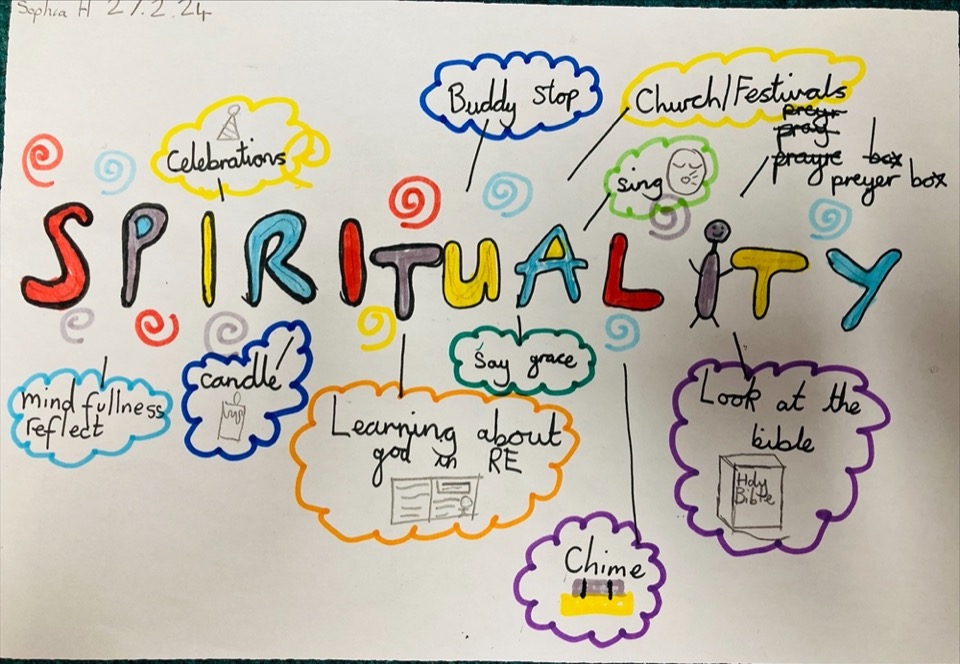 Sophia H 27.2.24
Buddy Stop
Church/Festivals
Celebrations
preyr
pray
prayre box
preyer box
sing
SPIRITUALITY
mind fullness
reflect
candle
Say grace
Learning about
god in RE
Look at the
bible
Holy
Bible
Chime